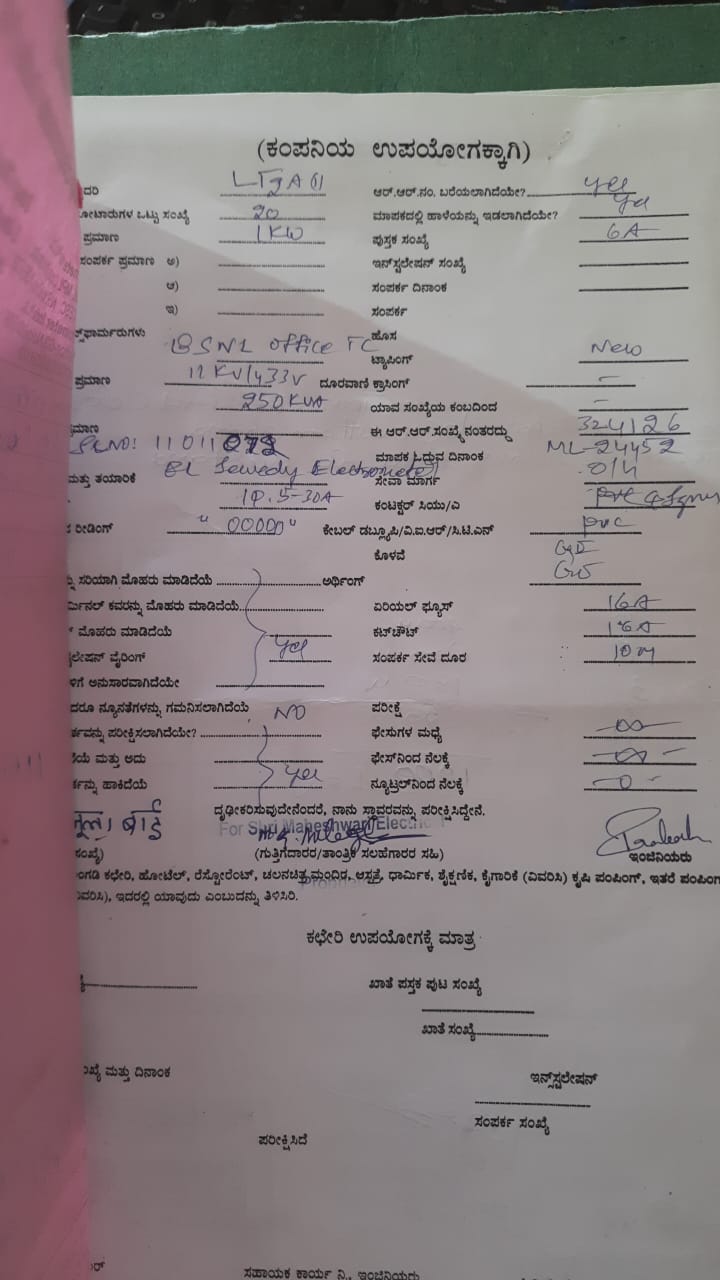 (ಕಂಪನಿಯ ಉಪಯೋಗಕ್ಕಾಗಿ)
ದರಿ LT2A(I) ಆರ್.ಆರ್.ನಂ. ಬರೆಯಲಾಗಿದೆಯೇ? yes
ೋಟಾರುಗಳ ಒಟ್ಟು ಸಂಖ್ಯೆ 20 ಮಾಪಕದಲ್ಲಿ ಹಾಳೆಯನ್ನು ಇಡಲಾಗಿದೆಯೇ? yes
ಪ್ರಮಾಣ 1KW ಪುಸ್ತಕ ಸಂಖ್ಯೆ 6A
ಸಂಪರ್ಕ ಪ್ರಮಾಣ ಅ) ಇನ್‌ಸ್ಟಲೇಷನ್ ಸಂಖ್ಯೆ
ಆ) ಸಂಪರ್ಕ ದಿನಾಂಕ
ಇ) ಸಂಪರ್ಕ
ಸ್‌ಫಾರ್ಮರುಗಳು ಹೊಸ
BSNL office TC ಟ್ಯಾಪಿಂಗ್ New
ಪ್ರಮಾಣ 11KV/433V ದೂರವಾಣಿ ಕ್ರಾಸಿಂಗ್ -
250KVA ಯಾವ ಸಂಖ್ಯೆಯ ಕಂಬದಿಂದ -
ಮಾಣ ಈ ಆರ್.ಆರ್.ಸಂಖ್ಯೆ ನಂತರದ್ದು 324126
SLNO: 11011272 ಮಾಪಕ ಓದುವ ದಿನಾಂಕ ML-24452
ಮತ್ತು ತಯಾರಿಕೆ EL Sewedy Electrometer ಸೇವಾ ಮಾರ್ಗ O/H
1Φ.5-30A ಕಂಟಕ್ಟರ್ ಸಿಯು/ಎ PVC
ರೀಡಿಂಗ್ "00000" ಕೇಬಲ್ ಡಬ್ಲ್ಯೂಪಿ/ವಿ.ಐ.ಆರ್/ಸಿ.ಟಿ.ಎಸ್ PVC
ಕೊಳವೆ
ಸರಿಯಾಗಿ ಮೊಹರು ಮಾಡಿದೆಯೆ ಅರ್ಥಿಂಗ್
ರ್ಮಿನಲ್ ಕವರನ್ನು ಮೊಹರು ಮಾಡಿದೆಯೆ ಏರಿಯಲ್ ಫ್ಯೂಸ್ 16A
ಮೊಹರು ಮಾಡಿದೆಯೆ ಕಟ್‌ಔಟ್ 16A
ಲೇಷನ್ ವೈರಿಂಗ್ yes ಸಂಪರ್ಕ ಸೇವೆ ದೂರ 10M
ಳಿಗೆ ಅನುಸಾರವಾಗಿದೆಯೇ
ದರೂ ನ್ಯೂನತೆಗಳನ್ನು ಗಮನಿಸಲಾಗಿದೆಯೆ NO ಪರೀಕ್ಷೆ
ರ್ಕವನ್ನು ಪರೀಕ್ಷಿಸಲಾಗಿದೆಯೇ? ಫೇಸುಗಳ ಮಧ್ಯೆ
ಯೆ ಮತ್ತು ಅದು ಫೇಸ್‌ನಿಂದ ನೆಲಕ್ಕೆ
ರ್ಕನ್ನು ಹಾಕಿದೆಯೆ yes ನ್ಯೂಟ್ರಲ್‌ನಿಂದ ನೆಲಕ್ಕೆ
ದೃಢೀಕರಿಸುವುದೇನೆಂದರೆ, ನಾನು ಸ್ಥಾವರವನ್ನು ಪರೀಕ್ಷಿಸಿದ್ದೇನೆ.
बाई For Shri Maheshwari Elec
ಸಂಖ್ಯೆ) (ಗುತ್ತಿಗೆದಾರರ/ತಾಂತ್ರಿಕ ಸಲಹೆಗಾರರ ಸಹಿ) ಇಂಜಿನಿಯರು
ಂಗಡಿ ಕಛೇರಿ, ಹೋಟೆಲ್, ರೆಸ್ಟೋರೆಂಟ್, ಚಲನಚಿತ್ರ ಮಂದಿರ, ಆಸ್ಪತ್ರೆ, ಧಾರ್ಮಿಕ, ಶೈಕ್ಷಣಿಕ, ಕೈಗಾರಿಕೆ (ವಿವರಿಸಿ) ಕೃಷಿ ಪಂಪಿಂಗ್, ಇತರೆ ಪಂಪಿಂಗ
ವಿವರಿಸಿ), ಇದರಲ್ಲಿ ಯಾವುದು ಎಂಬುದನ್ನು ತಿಳಿಸಿರಿ.
ಕಛೇರಿ ಉಪಯೋಗಕ್ಕೆ ಮಾತ್ರ
ಖಾತೆ ಪುಸ್ತಕ ಪುಟ ಸಂಖ್ಯೆ
ಖಾತೆ ಸಂಖ್ಯೆ
ಖ್ಯೆ ಮತ್ತು ದಿನಾಂಕ ಇನ್‌ಸ್ಟಲೇಷನ್
ಸಂಪರ್ಕ ಸಂಖ್ಯೆ
ಪರೀಕ್ಷಿಸಿದೆ
ಸಹಾಯಕ ಕಾರ್ಯ ನಿ., ಇಂಜಿನಿಯರು